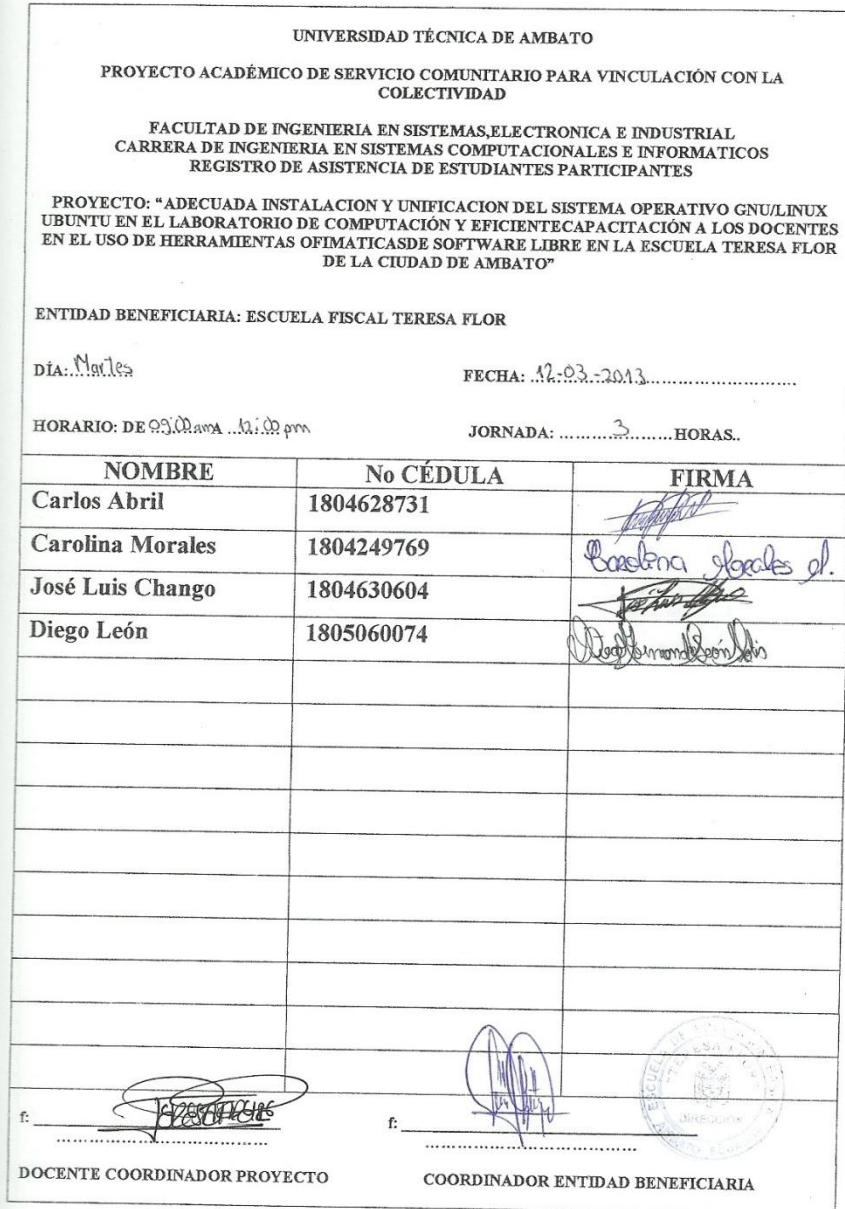 UNIVERSIDAD TÉCNICA DE AMBATO
PROYECTO ACADÉMICO DE SERVICIO COMUNITARIO PARA VINCULACIÓN CON LA
COLECTIVIDAD
FACULTAD DE INGENIERIA EN SISTEMAS,ELECTRONICA E INDUSTRIAL
CARRERA DE INGENIERIA EN SISTEMAS COMPUTACIONALES E INFORMATICOS
REGISTRO DE ASISTENCIA DE ESTUDIANTES PARTICIPANTES
PROYECTO: “ADECUADA INSTALACION Y UNIFICACION DEL SISTEMA OPERATIVO GNU/LINUX
UBUNTU EN EL LABORATORIO DE COMPUTACIÓN Y EFICIENTECAPACITACIÓN A LOS DOCENTES
EN EL USO DE HERRAMIENTAS OFIMATICASDE SOFTWARE LIBRE EN LA ESCUELA TERESA FLOR
DE LA CIUDAD DE AMBATO”
ENTIDAD BENEFICIARIA: ESCUELA FISCAL TERESA FLOR
DÍA: Martes FECHA: 12-03-2013
HORARIO: DE 09:00 am A 12:00 pm JORNADA: 3 HORAS..
NOMBRE No CÉDULA FIRMA
Carlos Abril 1804628731
Carolina Morales 1804249769 Carolina Morales
José Luis Chango 1804630604
Diego León 1805060074
f: f:
DIRECCION
DOCENTE COORDINADOR PROYECTO COORDINADOR ENTIDAD BENEFICIARIA